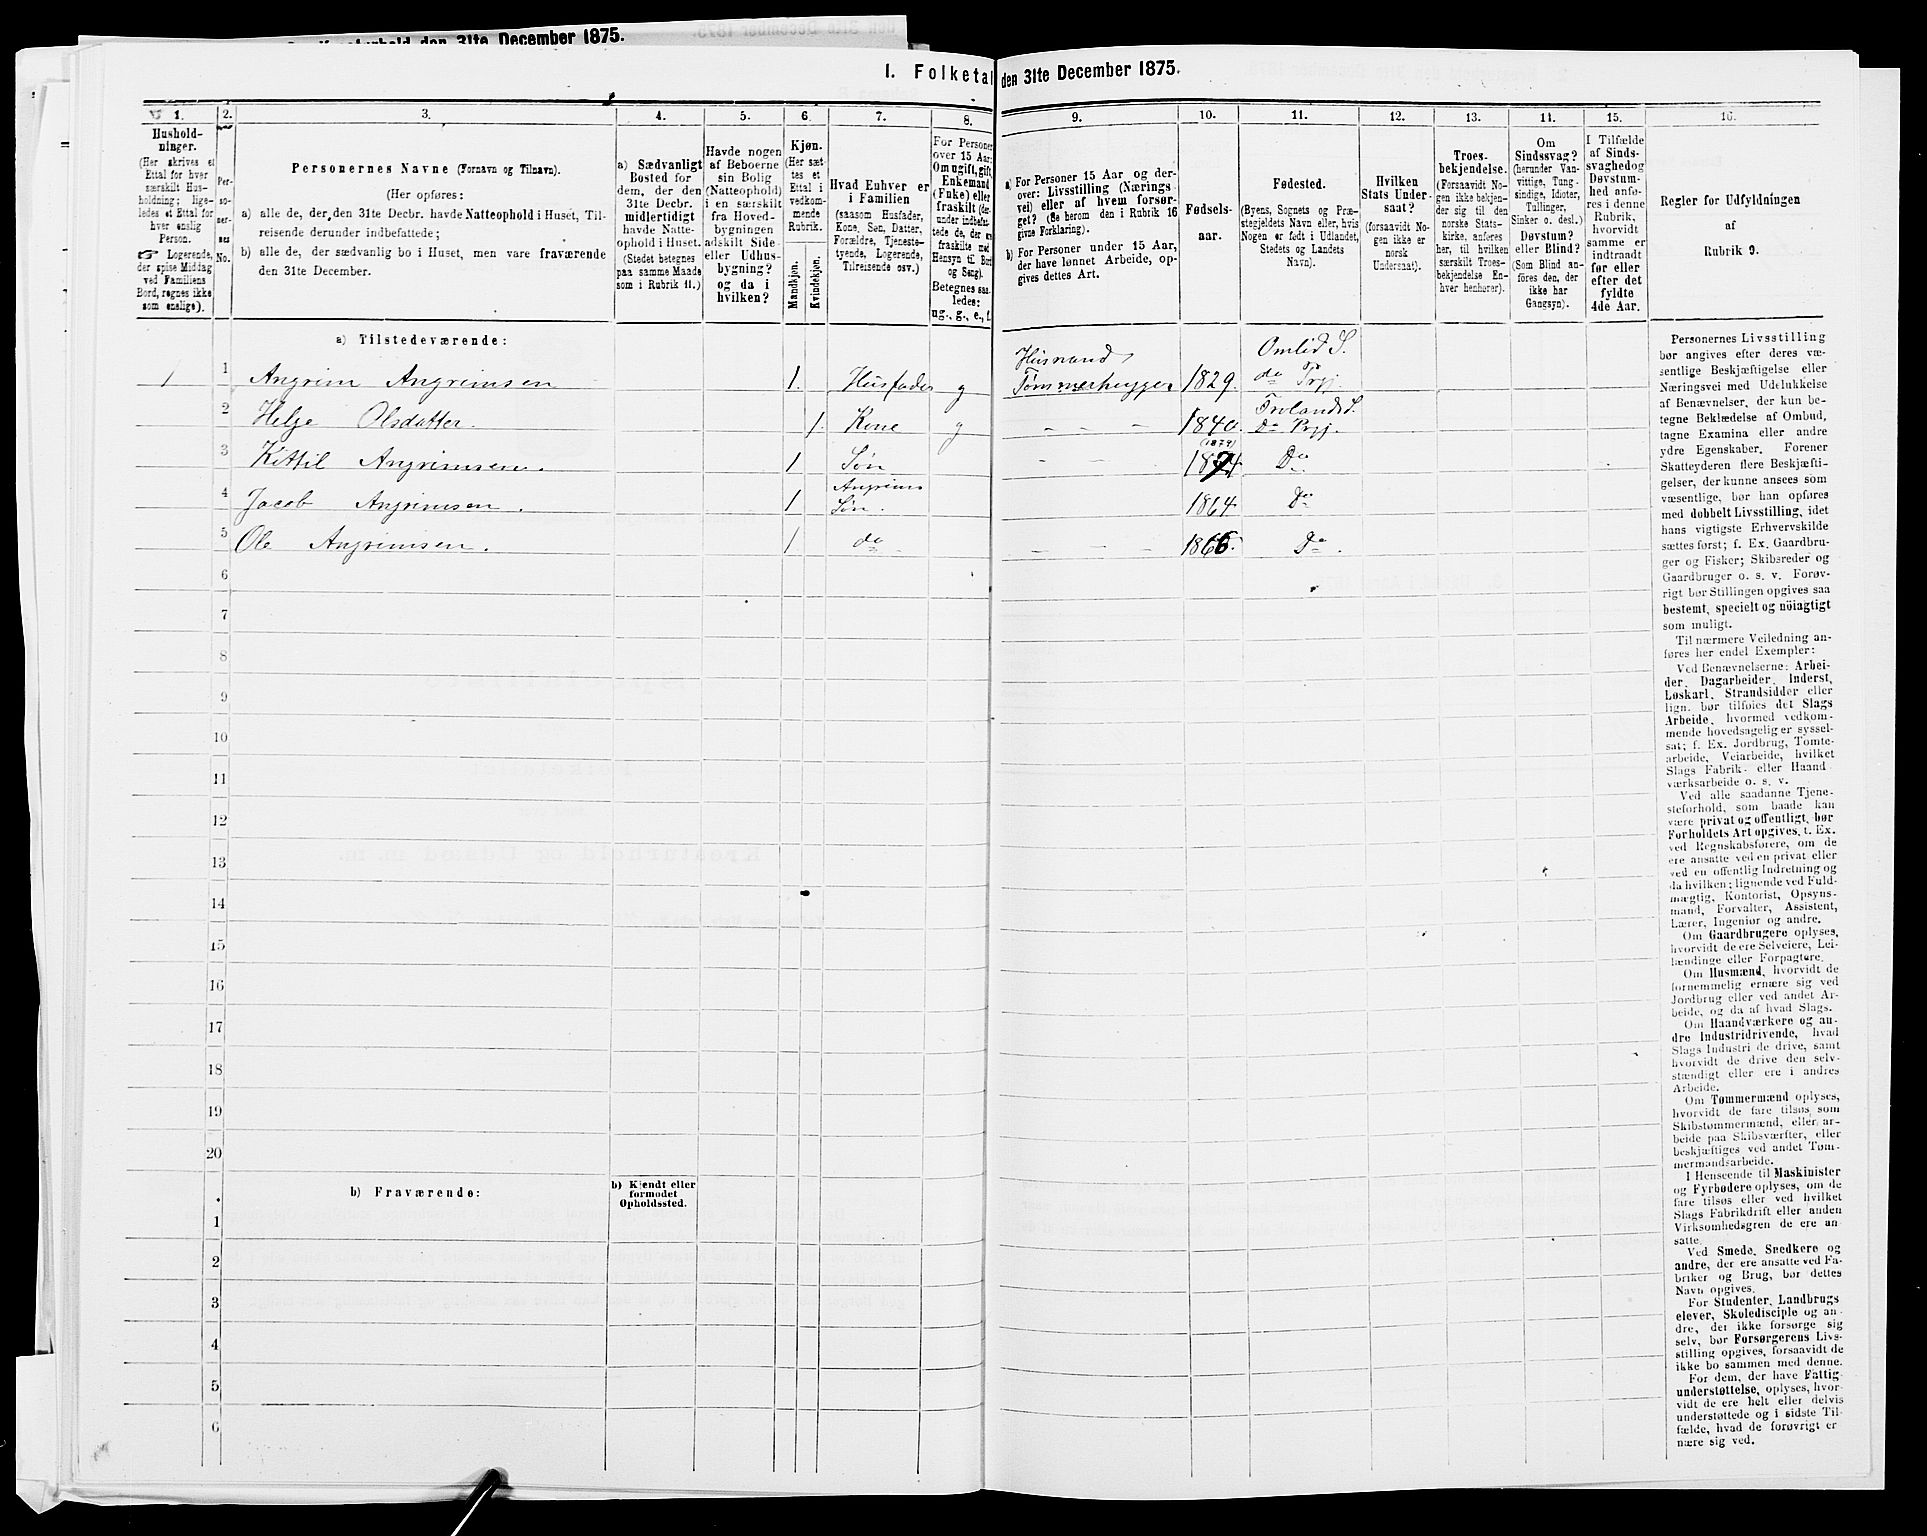 Kreaturhold den 31te December 1875.
I. Folketal den 31te December 1875.
1.
Hushold-
ninger.
(Her skrives et
Ettal for hver
særskilt Hus-
holdning; lige-
ledes et Ettal for
hver enslig
Person.
☞ Logerende,
der spise Middag
ved Familiens
Bord, regnes ikke
som enslige).
2.
Per-
so-
ner-
nes
No.
3.
Personernes Navne (Fornavn og Tilnavn).
(Her opføres:
a) alle de, der den 31te Decbr. havde Natteophold i Huset, Til-
reisende derunder indbefattede;
b) alle de, der sædvanlig bo i Huset, men vare fraværende
den 31te December.
4.
a) Sædvanligt
Bosted for
dem, der den
31te Decbr.
midlertidigt
havde Natte-
ophold i Huset.
(Stedet betegnes
paa samme Maade
som i Rubrik 11.)
5.
Havde nogen
af Beboerne
sin Bolig
(Natteophold)
i en særskilt
fra Hoved-
bygningen
adskilt Side-
eller Udhus-
bygning?
og da i
hvilken?
6.
Kjøn.
(Her sæt-
tes et
Ettal i
vedkom-
mende
Rubrik.
Mandkjøn.
Kvindekjøn.
7.
Hvad Enhver er
i Familien
(saasom Husfader,
Kone, Søn, Datter,
Forældre, Tjeneste-
tyende, Logerende,
Tilreisende osv.)
8.
For Personer
over 15 Aar:
Om ugift, gift,
Enkemand
(Enke) eller
fraskilt (der-
under indbefat-
tede de, der ere
fraskilte med
Hensyn til Bord
og Seng).
Betegnes saa-
ledes:
ug., g., e., f.
9.
a) For Personer 15 Aar og der-
over: Livsstilling (Nærings-
vei) eller af hvem forsør-
get? (Se herom den i Rubrik 16
givne Forklaring).
b) For Personer under 15 Aar,
der have lønnet Arbeide, op-
gives dettes Art.
10.
Fødsels-
aar.
11.
Fødested.
(Byens, Sognets og Præ-
stegjeldets Navn eller, hvis
Nogen er født i Udlandet,
Stedets og Landets
Navn).
12.
Hvilken
Stats Under-
saat?
(forsaavidt No-
gen ikke er
norsk
Undersaat).
13.
Troes-
bekjendelse.
(Forsaavidt No-
gen ikke bekjen-
der sig til den
norske Stats-
kirke, anføres
her, til hvilken
særskilt Troes-
bekjendelse En-
hver henhører).
14.
Om
Sindssvag?
(herunder Van-
vittige, Tung-
sindige, Idioter,
Tullinger,
Sinker o. desl.)
Døvstum?
eller Blind?
(Som Blind an-
føres den, der
ikke har
Gangsyn).
15.
I Tilfælde
af Sinds-
svaghed og
Døvstum-
hed anfø-
res i denne
Rubrik,
hvorvidt
samme er
indtraadt
før eller
efter det
fyldte
4de Aar.
16.
Regler for Udfyldningen
af
Rubrik 9.
a) Tilstedeværende:
1 1 Angrim Angrimsen 1. Husfader g Husmand, Tømmerhugger 1829. Omlid S. do Prgj.
2 Helge Olsdatter. 1. Kone g — — — 1840. Frolands S. Do Prgj.
3 Kittil Angrimsen. 1 Søn — — 1874 (1874) Do
4 Jacob Angrimsen. 1 Angrims Søn. 1864 Do
5 Ole Angrimsen. 1 do — — — 1866. Do.
6
7
8
9
10
11
12
13
14
15
16
17
18
19
20
b) Fraværende:
b) Kjendt eller
formodet
Opholdssted.
1
2
3
4
5
6
Personernes Livsstilling
bør angives efter deres væ-
sentlige Beskjæftigelse eller
Næringsvei med Udelukkelse
af Benævnelser, der kun be-
tegne Beklædelse af Ombud,
tagne Examina eller andre
ydre Egenskaber. Forener
Skatteyderen flere Beskjæfti-
gelser, der kunne ansees som
væsentlige, bør han opføres
med dobbelt Livsstilling, idet
hans vigtigste Erhvervskilde
sættes først; f. Ex. Gaardbru-
ger og Fisker; Skibsreder og
Gaardbruger o. s. v. Forøv-
rigt bør Stillingen opgives saa
bestemt, specielt og nöiagtigt
som muligt.
Til nærmere Veiledning an-
føres her endel Exempler:
Ved Benævnelserne: Arbei-
der, Dagarbeider, Inderst,
Løskarl, Strandsidder eller
lign. bør tilføies det Slags
Arbeide, hvormed vedkom-
mende hovedsagelig er syssel-
sat; f. Ex. Jordbrug, Tomte-
arbeide, Veiarbeide, hvilket
Slags Fabrik- eller Haand-
værksarbeide o. s. v.
Ved alle saadanne Tjene-
steforhold, som baade kan
være privat og offentligt, bør
Forholdets Art opgives, t. Ex.
ved Regnskabsførere, om de
ere ansatte ved en privat eller
ved en offentlig Indretning og
da hvilken; lignende ved Fuld-
mægtig, Kontorist, Opsyns-
mand, Forvalter, Assistent,
Lærer, Ingeniør og andre.
Om Gaardbrugere oplyses,
hvorvidt de ere Selveiere, Lei-
lændinge eller Forpagtere.
Om Husmænd, hvorvidt de
fornemmelig ernære sig ved
Jordbrug eller ved andet Ar-
beide, og da af hvad Slags.
Om Haandværkere og an-
dre Industridrivende, hvad
Slags Industri de drive, samt
hvorvidt de drive den selv-
stændigt eller ere i andres
Arbeide.
Om Tømmermænd oplyses,
hvorvidt de fare tilsøs som
Skibstømmermænd, eller ar-
beide paa Skibsværfter, eller
beskjæftiges ved andet Tøm-
mermandsarbeide.
I Henseende til Maskinister
og Fyrbødere oplyses, om de
fare tilsøs eller ved hvilket
Slags Fabrikdrift eller anden
Virksomhedsgren de ere an-
satte.
Ved Smede, Snedkere og
andre, der ere ansatte ved Fa-
briker og Brug, bør dettes
Navn opgives.
For Studenter, Landbrugs-
elever, Skoledisciple og an-
dre, der ikke forsørge sig
selv, bør Forsørgerens Livs-
stilling opgives, forsaavidt de
ikke bo sammen med denne.
For dem, der have Fattig-
understøttelse, oplyses, hvor-
vidt de ere helt eller delvis
understøttede og i sidste Til-
fælde, hvad de forøvrigt er-
nære sig ved.